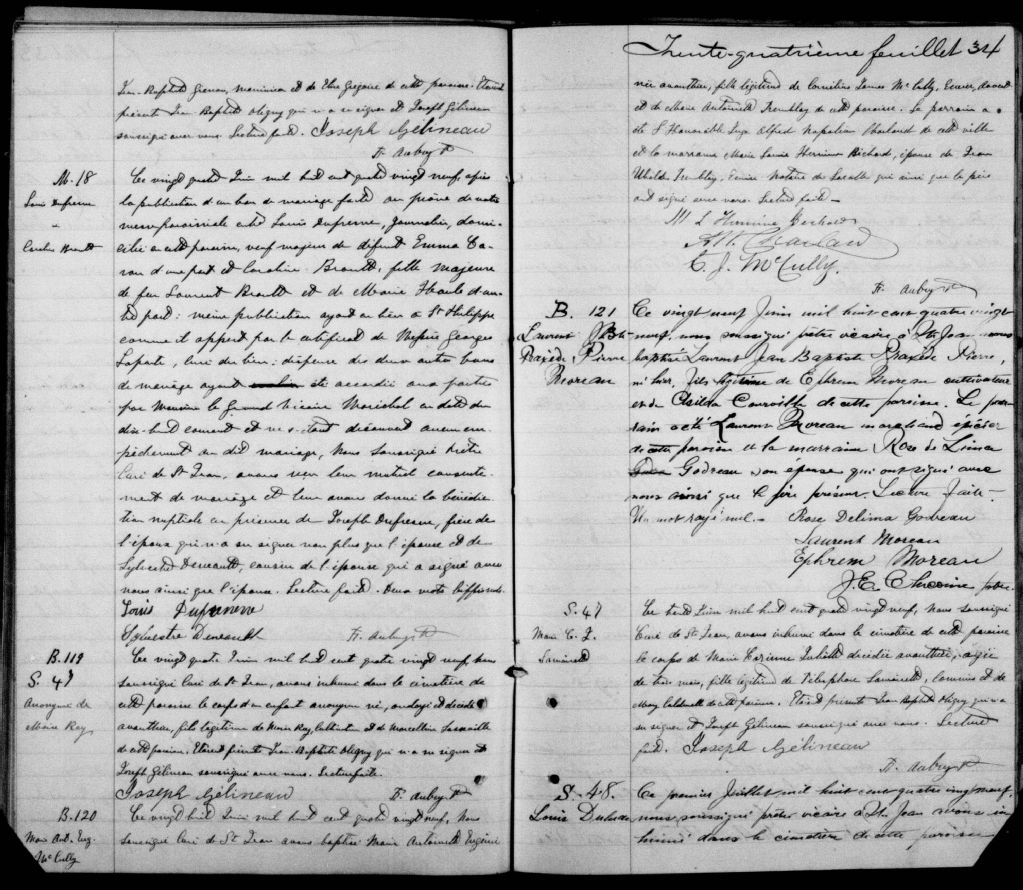 Jean-Baptiste menuisier et de de cette paroisse. Etaient
présents Jean Baptiste Oligny qui n'a su signer et Joseph Gélineau
soussigné avec nous. Lecture faite. Joseph Gélineau
F. Aubry P
M. 18
Louis Dufresne
&
Caroline
Ce vingt quatre Juin mil huit cent quatre vingt neuf, après
la publication d'un ban de mariage faite au prône de notre
messe paroissiale entre Louis Dufresne, Journalier, domi-
cilié en cette paroisse, veuf majeur de défunte Emma Ca-
ron d'une part et Caroline fille majeure
de feu Laurent et de Marie d'au-
tre part: même publication ayant eu lieu à St Philippe
comme il appert par le certificat de Messire Georges
Laporte, Curé du lieu: dispense des deux autres bans
de mariage ayant été accordée aux parties
par Monsieur le Grand Vicaire Maréchal en date du
dix-huit courant et ne s'étant découvert aucun em-
pêchement au dit mariage, Nous soussigné Prêtre
Curé de St Jean, avons reçu leur mutuel consente-
ment de mariage et leur avons donné la bénédic-
tion nuptiale en présence de Joseph Dufresne, frère de
l'époux qui n'a su signer non plus que l'épouse et de
Sylvestre Deneault, cousin de l'épouse qui a signé avec
nous ainsi que l'époux. Lecture faite. Deux mots biffés nuls.
Louis Dufresne
Sylvestre Deneault F. Aubry P
B. 119
S. 47
Anonyme de
Moïse Roy
Ce vingt quatre Juin mil huit cent quatre vingt neuf, Nous
soussigné Curé de St Jean, avons inhumé dans le cimetière de
cette paroisse le corps d'un enfant anonyme né, ondoyé et décédé
avanthier, fils légitime de Moïse Roy, et de Marcelline
de cette paroisse. Etaient présents Jean Baptiste Oligny qui n'a su signer et
Joseph Gélineau soussigné avec nous. Lecture faite.
Joseph Gélineau F. Aubry P
B. 120
Marie Ant. Eug.
McCully
Ce vingt huit Juin mil huit cent quatre vingt neuf, Nous
soussigné Curé de St Jean avons baptisé Marie Antoinette Eugénie
Trente-quatrième feuillet 34
née avanthier, fille légitime de Cornélius James McCully, Ecuier, Avocat
et de Marie Antoinette Tremblay de cette paroisse. Le parrain a
été l'Honorable Juge Alfred Napoléon Charland de cette ville
et la marraine Marie Louise Hermine Béchard, épouse de Jean
Ubalde Tremblay, Ecuier Notaire de qui ainsi que le père
ont signé avec nous. Lecture faite —
M L Hermine Béchard
A.N. Charland
C. J. McCully
F. Aubry P
B. 121
Laurent J. Bte
Praxède Pierre
Moreau
Ce vingt neuf Juin mil huit cent quatre vingt
neuf, nous soussigné prêtre vicaire à St. Jean, avons
baptisé Laurent Jean Baptiste Praxède Pierre,
né hier, fils légitime de Ephrem Moreau cultivateur
et de Clsilda Courville de cette paroisse. Le par-
rain a été Laurent Moreau marchand épicier
de cette paroisse et la marraine Rose de Lima
Godreau son épouse qui ont signé avec
nous ainsi que le père présent. Lecture faite. —
Un mot rayé nul. — Rose Delima Godreau
Laurent Moreau
Ephrem Moreau
J. E. ptre
S. 47
Marie C. J.
Ce trente Juin mil huit cent quatre vingt neuf, Nous soussigné
Curé de St Jean, avons inhumé dans le cimetière de cette paroisse
le corps de Marie Corinne Juliette décédée avanthier, agée
de trois mois, fille légitime de Télesphore commis et de
Mary Caldwell de cette paroisse. Etaient présents Jean Baptiste Oligny qui n'a
su signer et Joseph Gélineau soussigné avec nous. Lecture
faite. Joseph Gélineau
F. Aubry P
S. 48.
Louis
Ce premier Juillet mil huit cent quatre vingt neuf,
nous soussigné prêtre vicaire à St. Jean avons in-
humé dans le cimetière de cette paroisse